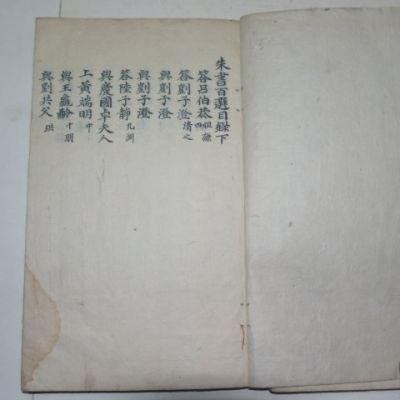 朱書百選目錄下
答呂伯恭祖謙四
答劉子澄清之
與劉子澄
與劉子澄
答陸子靜九淵
與慶國卓夫人
上黃端明中
與王龜齡十朋
與劉共父珙